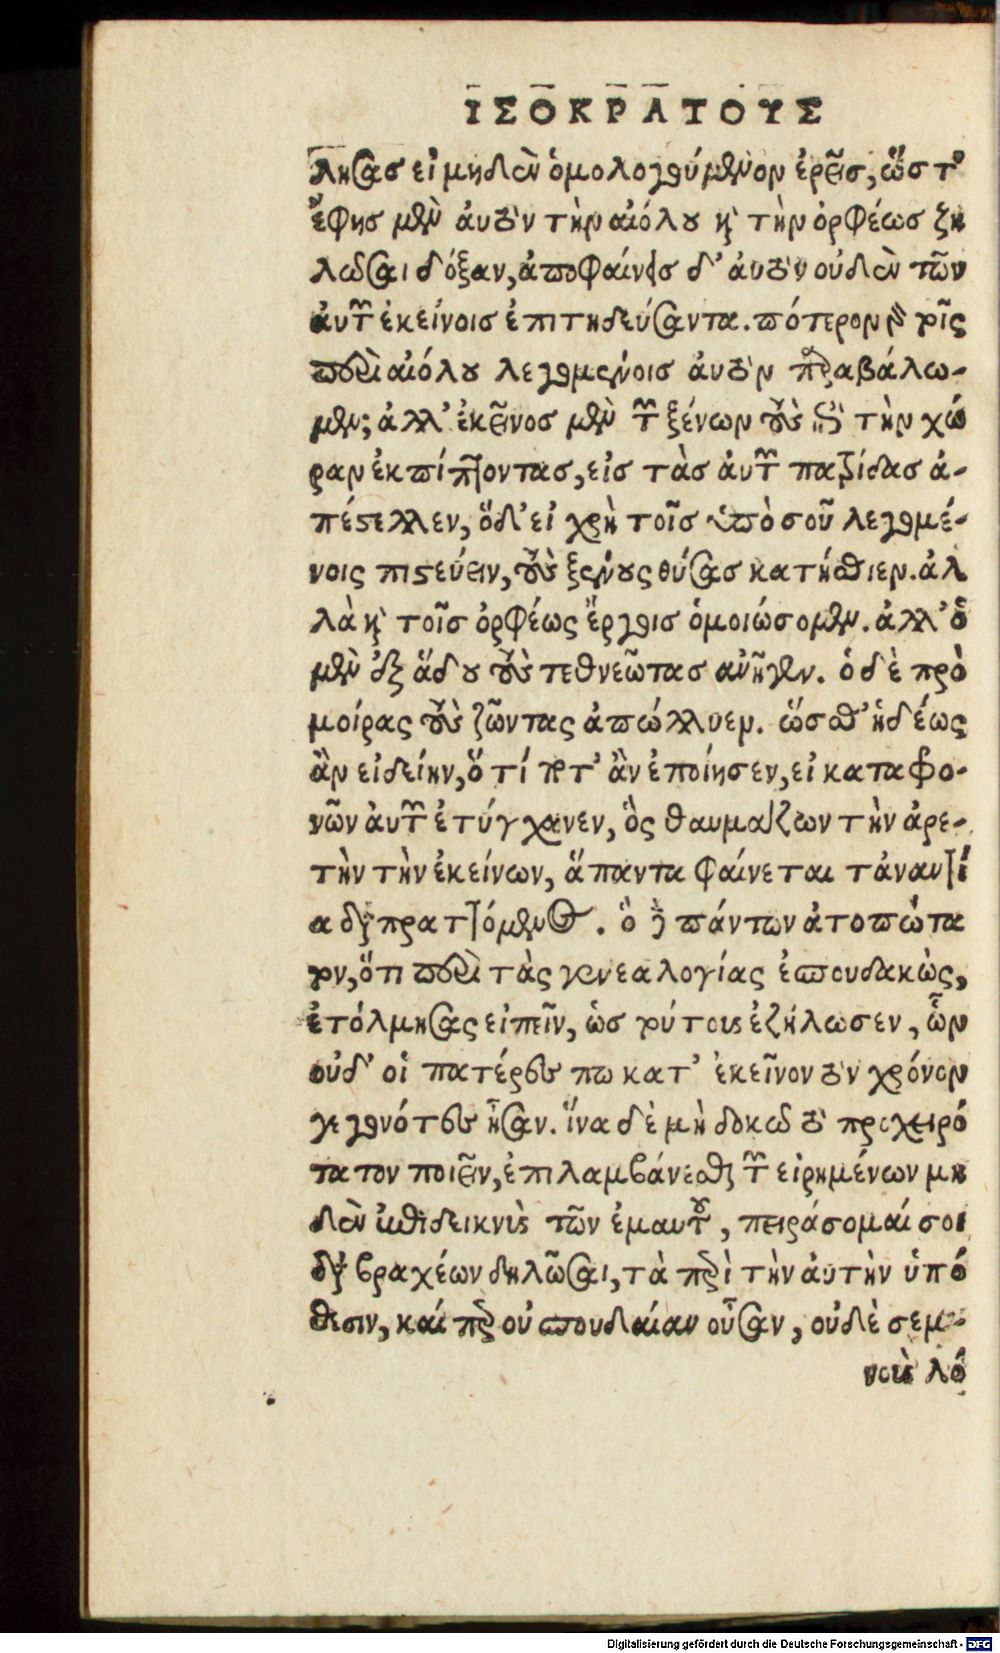 ΙΣΟΚΡΑΤΟΥΣ
λησας εἰ μηδὲν ὁμολογούμενον ἐρεῖς, ὥστ'
ἔφης μὲν ἀυτὸν τὴν αἰόλου καὶ τὴν ὀρφέως ζη
λῶσαι δόξαν, ἀποφαίνεις δ' ἀυτὸν οὐδὲν τῶν
ἀυτῶν ἐκείνοις ἐπιτηδεύσαντα. πότερον γὰρ τοῖς
περὶ αἰόλου λεγομένοις ἀυτὸν παραβάλω-
μεν; ἀλλ' ἐκεῖνος μὲν τῶν ξένων τοὺς ἐπὶ τὴν χώ
ραν ἐκπίπτοντας, εἰς τὰς ἀυτῶν πατρίδας ἀ-
πέστελλεν, ὅδ' εἰ χρὴ τοῖς ὑπὸ σοῦ λεγομέ-
νοις πιστεύειν, τοὺς ξένους θύσας κατήσθιεν. ἀλ
λὰ καὶ τοῖς ὀρφέως ἔργοις ὁμοιώσομεν. ἀλλ' ὁ
μὲν ἐξ ᾅδου τοὺς τεθνεῶτας ἀνῆγεν. ὁ δὲ πρὸ
μοίρας τοὺς ζῶντας ἀπώλλυεν. ὥσθ' ἡδέως
ἂν εἰδείην, ὅ τί ποτ' ἂν ἐποίησεν, εἰ καταφο-
νῶν ἀυτῶν ἐτύγχανεν, ὃς θαυμάζων τὴν ἀρε-
τὴν τὴν ἐκείνων, ἅπαντα φαίνεται τἀναντί
α διαπραττόμενος. ὃ δὲ πάντων ἀτοπώτα
τον, ὅτι περὶ τὰς γενεαλογίας ἐσπουδακὼς,
ἐτόλμησας εἰπεῖν, ὡς τούτους ἐζήλωσεν, ὧν
οὐδ' οἱ πατέρες πω κατ' ἐκεῖνον τὸν χρόνον
γεγονότες ἦσαν. ἵνα δὲ μὴ δοκῶ τὸ προχειρό
τατον ποιεῖν, ἐπιλαμβάνεσθαι τῶν εἰρημένων μη
δὲν ἐπιδεικνὺς τῶν ἐμαυτοῦ, πειράσομαί σοι
διὰ βραχέων δηλῶσαι, τὰ περὶ τὴν ἀυτὴν ὑπό
θεσιν, καίπερ οὐ σπουδαίαν οὖσαν, οὐδὲ σεμ-
νοὺς λό
Digitalisierung gefördert durch die Deutsche Forschungsgemeinschaft - DFG